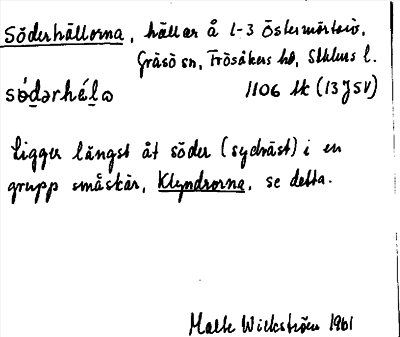 Söderhällorna, hällar å 1-3 Östermörtarö,
Gräsö sn, Frösåkers hd, Sthlms l.
só̱ḏərhé̱ḻɷ 1106 st (13J SV)
Ligger längst åt söder (sydväst) i en
grupp småskär, Klyndrorna, se detta.
Malte Wickström 1961